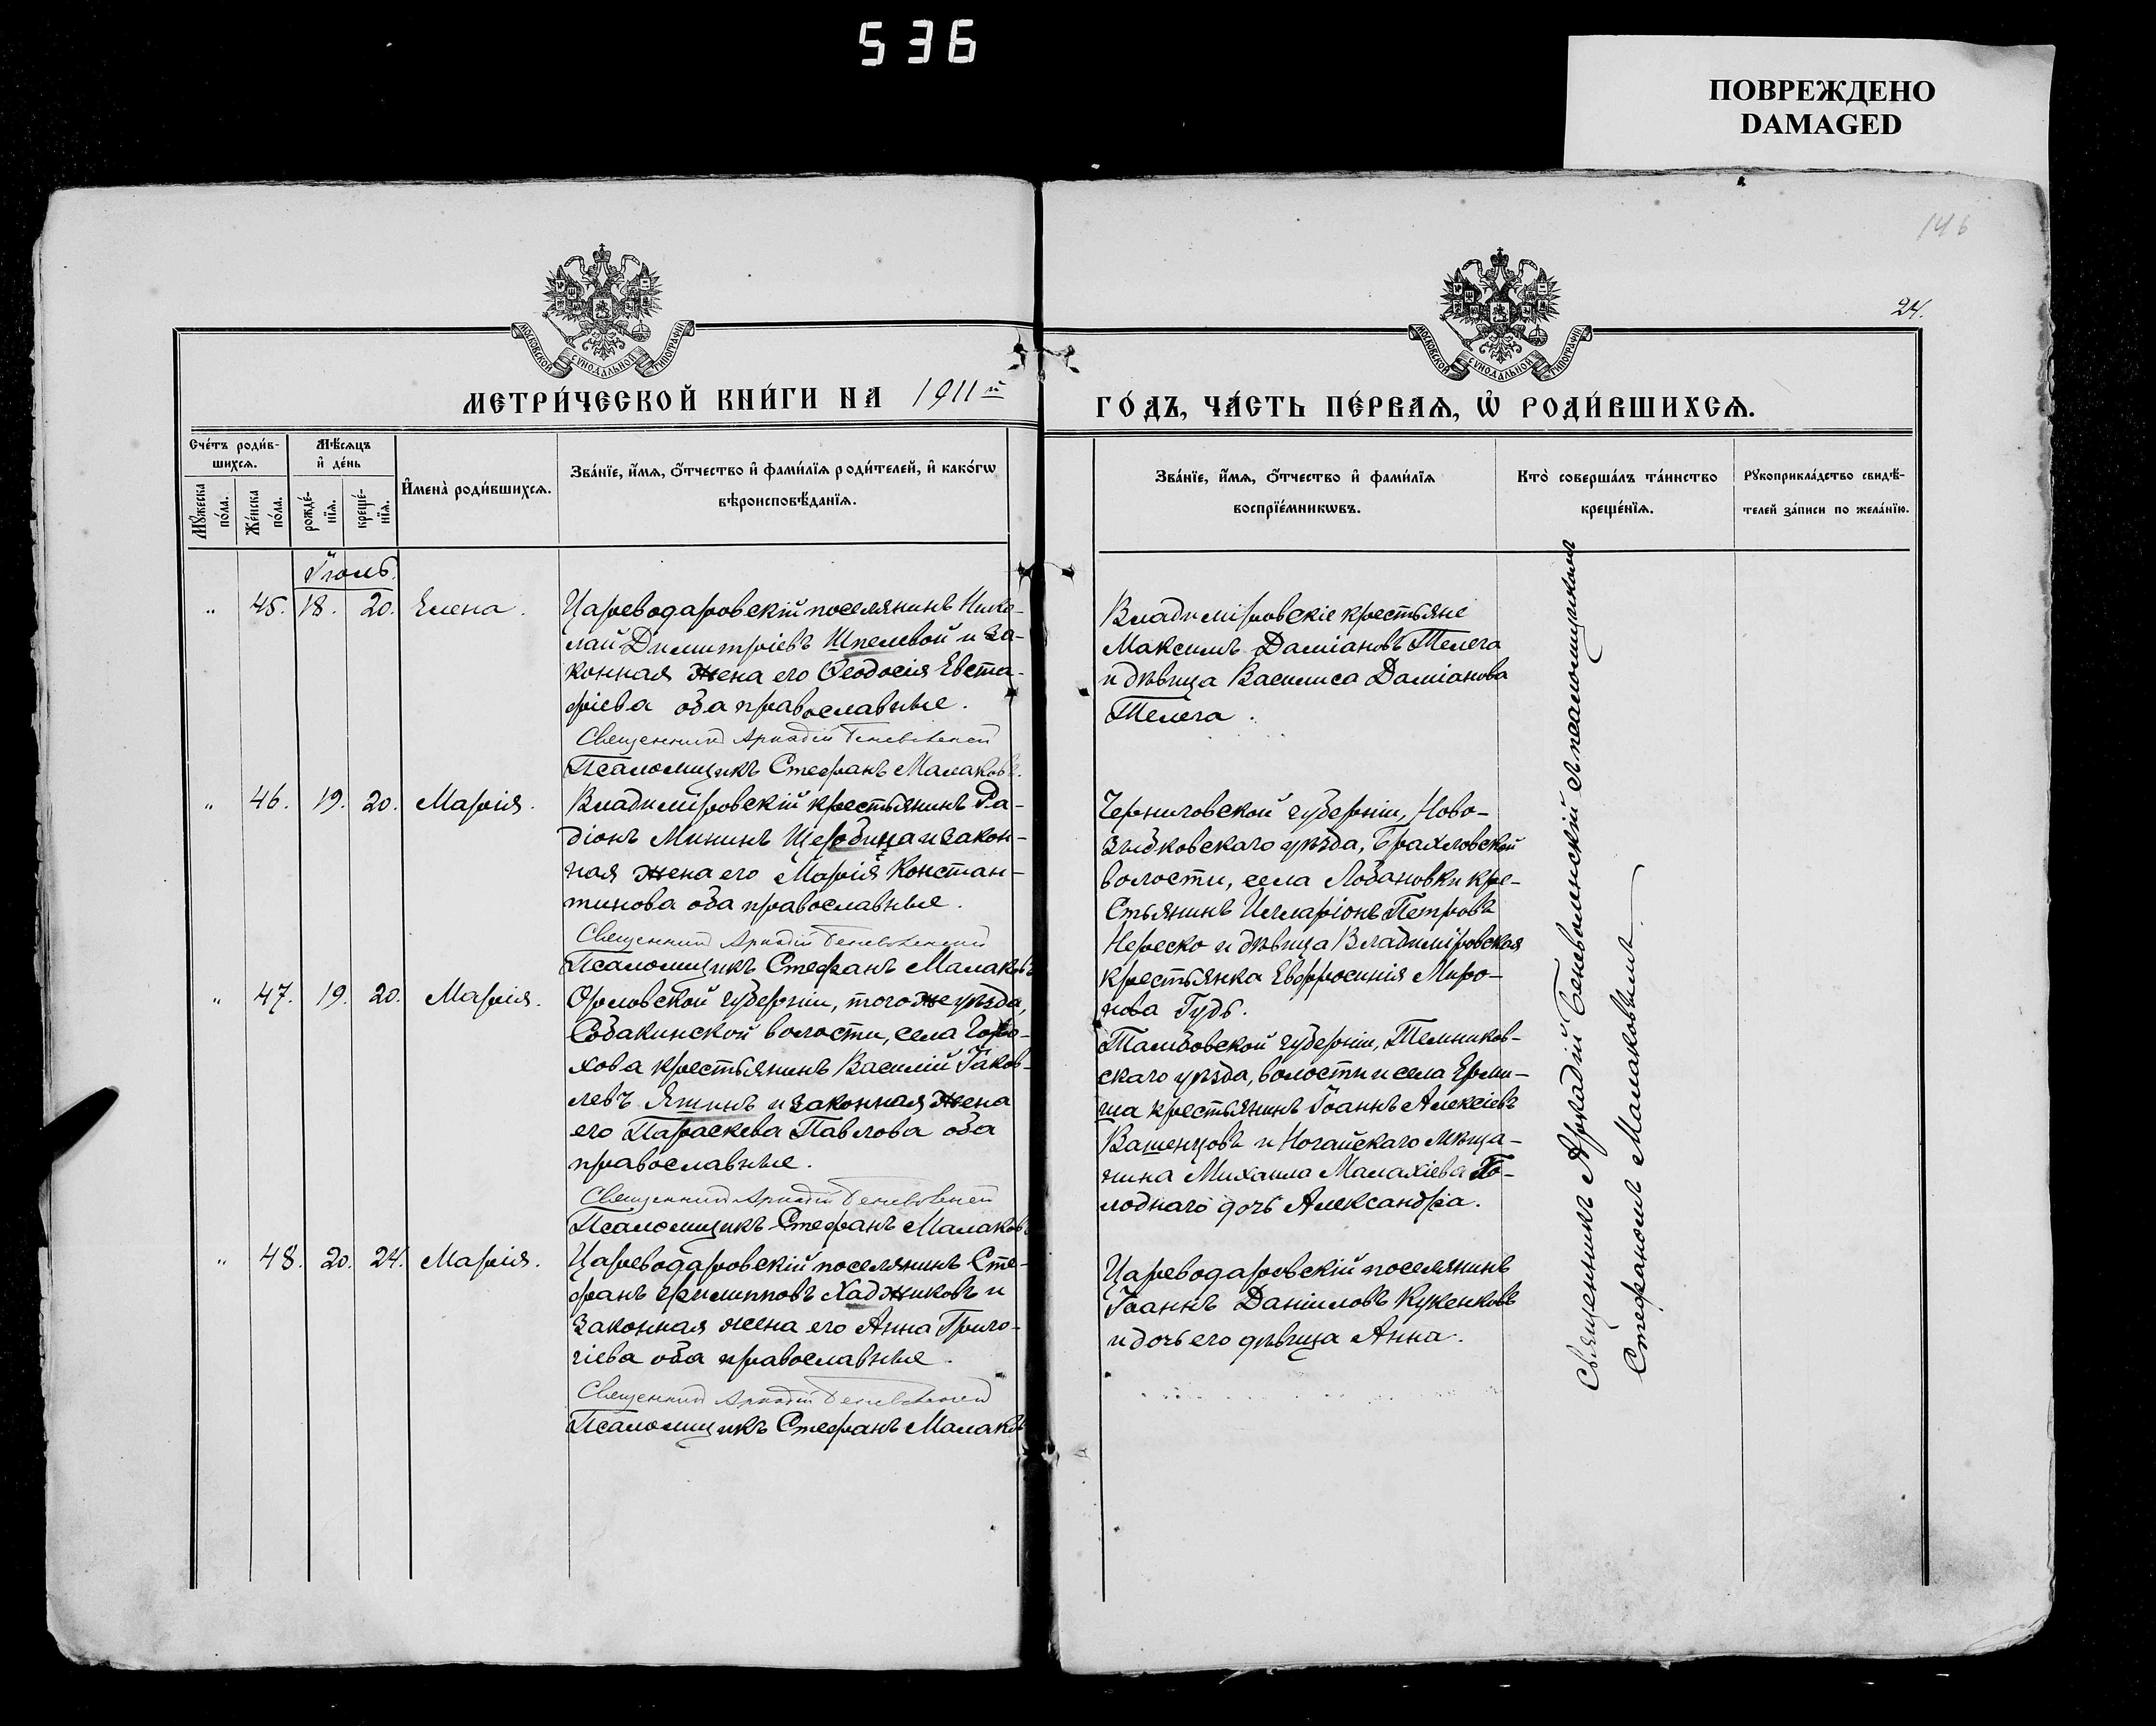 536
ПОВРЕЖДЕНО
DAMAGED
146
24.
МОСКОВСКОЙ СУНОДАЛЬНОЙ ТИПОГРАФІИ
МОСКОВСКОЙ СУНОДАЛЬНОЙ ТИПОГРАФІИ
МЕТРИ́ЧЕСКОЙ КНИ́ГИ НА 1911й
ГО́ДЪ, ЧА́СТЬ ПЕ́РВАѦ, Ѽ РОДИ́ВШИХСѦ.
Сче́тъ роди́в-
шихсѧ.
Мѣ́сѧцъ
и҆ де́нь
Мꙋ́жеска
по́ла.
Же́нска
по́ла.
рожде́-
нїѧ.
креще́-
нїѧ.
И҆мена̀ роди́вшихсѧ.
Зва́нїе, и҆́мѧ, ѻ҆́тчество и҆ фами́лїѧ роди́телей, и҆ како́гѡ
вѣроисповѣ́данїѧ.
Зва́нїе, и҆́мѧ, ѻ҆́тчество и҆ фами́лїѧ
воспрїе́мникѡвъ.
Кто̀ соверша́лъ та́инство
креще́нїѧ.
Рꙋкоприкла́дство свидѣ́-
телей за́писи по жела́нїю.
Іюль.
" 45. 18. 20. Елена.
Цареводаровскій поселянинъ Нико-
лай Димитріевъ Шпелевой и за-
конная жена его Ѳеодосія Евста-
фіева оба православные.
Священникъ Аркадій Беневоленскій
Псаломщикъ Стефанъ Малаковъ.
Владимировскіе крестьяне
Максимъ Даміановъ Телега
и дѣвица Василиса Даміанова
Телега.
" 46. 19. 20. Марія.
Владиміровскій крестьянинъ Ра-
діонъ Мининъ Щербина и закон-
ная жена его Марія Констан-
тинова оба православные.
Священникъ Аркадій Беневоленскій
Псаломщикъ Стефанъ Малаковъ
Черниговской губерніи, Ново-
зыбковскаго уѣзда, Брахловской
волости, села Лобановки кре-
стьянинъ Илларіонъ Петровъ
Нереско и дѣвица Владиміровская
крестьянка Евфросинія Миро-
нова Гудь.
" 47. 19. 20. Марія.
Орловской губерніи, того же уѣзда,
Собакинской волости, села Горо-
хова крестьянинъ Василій Іаков-
левъ Яшинъ и законная жена
его Параскева Павлова оба
православные.
Священникъ Аркадій Беневоленскій
Псаломщикъ Стефанъ Малаковъ
Тамбовской губерніи, Темников-
скаго уѣзда, волости и села Ерми-
ша крестьянинъ Іоаннъ Алексіевъ
Вашенцовъ и Ногайскаго мѣща-
нина Михаила Малахіева Го-
лоднаго дочь Александра.
" 48. 20. 24. Марія.
Цареводаровскій поселянинъ Сте-
фанъ Филипповъ Хаджиковъ и
законная жена его Анна Григо-
ріева оба православные.
Священникъ Аркадій Беневоленскій
Псаломщикъ Стефанъ Малаковъ
Цареводаровскій поселянинъ
Іоаннъ Даніиловъ Куженковъ
и дочь его дѣвица Анна.
Священникъ Аркадій Беневоленскій съ псаломщикомъ
Стефаномъ Малаковымъ.